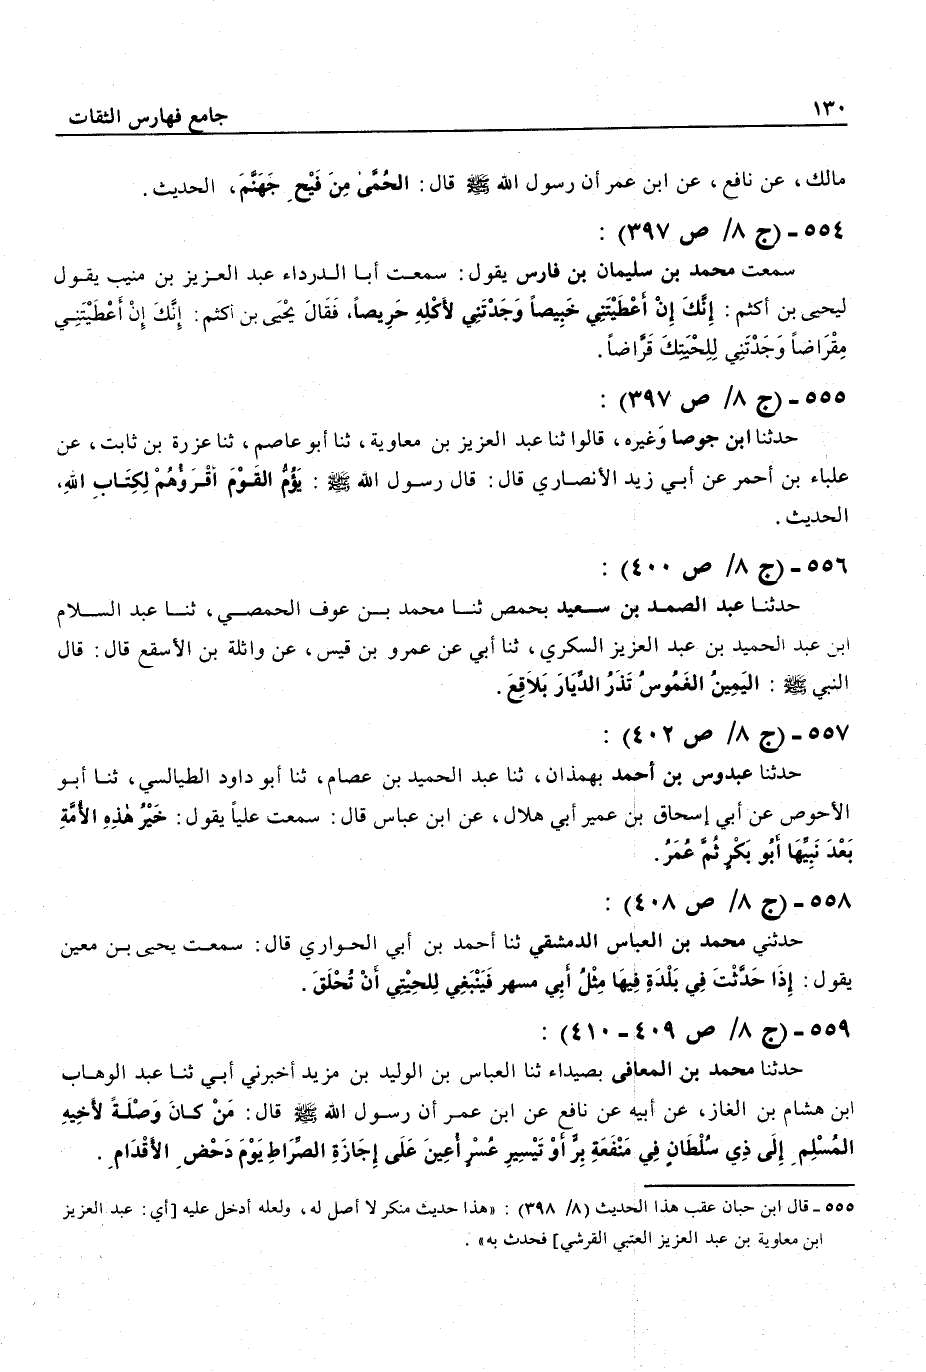 ١٣٠ جامع فهارس الثقات
مالك، عن نافع، عن ابن عمر أن رسول الله ﷺ قال: الحُمَّىٰ مِنَ فَيْحِ جَهَنَّمَ، الحديث.
٥٥٤ ـ (ج ٨/ ص ٣٩٧) :
سمعت محمد بن سليمان بن فارس يقول: سمعت أبا الدرداء عبد العزيز بن منيب يقول
ليحيى بن أكثم: إِنَّكَ إِنْ أَعْطَيْتَنِي خَبِيصاً وَجَدْتَنِي لأَكْلِهِ حَرِيصاً، فَقَالَ يَحْيَى بن أكثم: إِنَّكَ إِنْ أَعْطَيْتَنِي
مِقْرَاضاً وَجَدْتَنِي لِلِحْيَتِكَ قَرَّاضاً.
٥٥٥ ـ (ج ٨/ ص ٣٩٧) :
حدثنا ابن جوصا وَغيره، قالوا ثنا عبد العزيز بن معاوية، ثنا أبو عاصم، ثنا عزرة بن ثابت، عن
علباء بن أحمر عن أبي زيد الأنصاري قال: قال رسول الله ﷺ : يَؤُمُّ القَوْمَ أَقْرَؤُهُمْ لِكِتَابِ اللهِ،
الحديث.
٥٥٦ ـ (ج ٨/ ص ٤٠٠) :
حدثنا عبد الصمد بن سعيد بحمص ثنا محمد بن عوف الحمصي، ثنا عبد السلام
ابن عبد الحميد بن عبد العزيز السكري، ثنا أبي عن عمرو بن قيس، عن واثلة بن الأسقع قال: قال
النبي ﷺ : اليَمِينُ الغَمُوسُ تَذَرُ الدِّيَارَ بَلاَقِعَ.
٥٥٧ ـ (ج ٨/ ص ٤٠٢) :
حدثنا عبدوس بن أحمد بهمذان، ثنا عبد الحميد بن عصام، ثنا أبو داود الطيالسي، ثنا أبو
الأحوص عن أبي إسحاق بن عمير أبي هلال، عن ابن عباس قال: سمعت علياً يقول: خَيْرُ هٰذِهِ الأُمَّةِ
بَعْدَ نَبِيِّهَا أَبُو بَكْرٍ ثُمَّ عُمَرُ.
٥٥٨ ـ (ج ٨/ ص ٤٠٨) :
حدثني محمد بن العباس الدمشقي ثنا أحمد بن أبي الحواري قال: سمعت يحيى بن معين
يقول: إِذَا حَدَّثْتَ فِي بَلْدَةٍ فِيهَا مِثْلُ أَبِي مسهر فَيَنْبَغِي لِلحيْتِي أَنْ تُحْلَقَ.
٥٥٩ ـ (ج ٨/ ص ٤٠٩ ـ ٤١٠) :
حدثنا محمد بن المعافى بصيداء ثنا العباس بن الوليد بن مزيد أخبرني أبي ثنا عبد الوهاب
ابن هشام بن الغاز، عن أبيه عن نافع عن ابن عمر أن رسول الله ﷺ قال: مَنْ كَانَ وَصْلَةً لأَخِيهِ
المُسْلِمِ إِلَى ذِي سُلْطَانٍ فِي مَنْفَعَةِ بِرٍّ أَوْ تَيْسِيرِ عُسْرٍ أُعِينَ عَلَى إِجَازَةِ الصِّرَاطِ يَوْمَ دَحْضِ الأَقْدَامِ.
٥٥٥ ـ قال ابن حبان عقب هذا الحديث (٨/ ٣٩٨) : «هذا حديث منكر لا أصل له، ولعله أدخل عليه [أي: عبد العزيز
ابن معاوية بن عبد العزيز العتبي القرشي] فحدث به» .